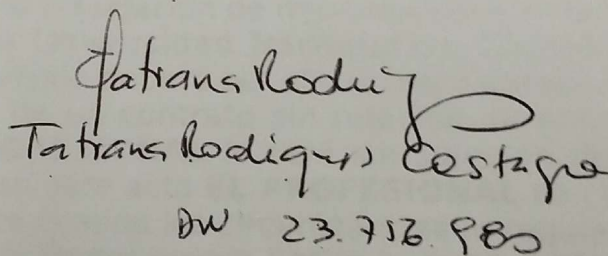 Tatiana Rodri
Tatiana Rodiguez Costagne
23.756.980